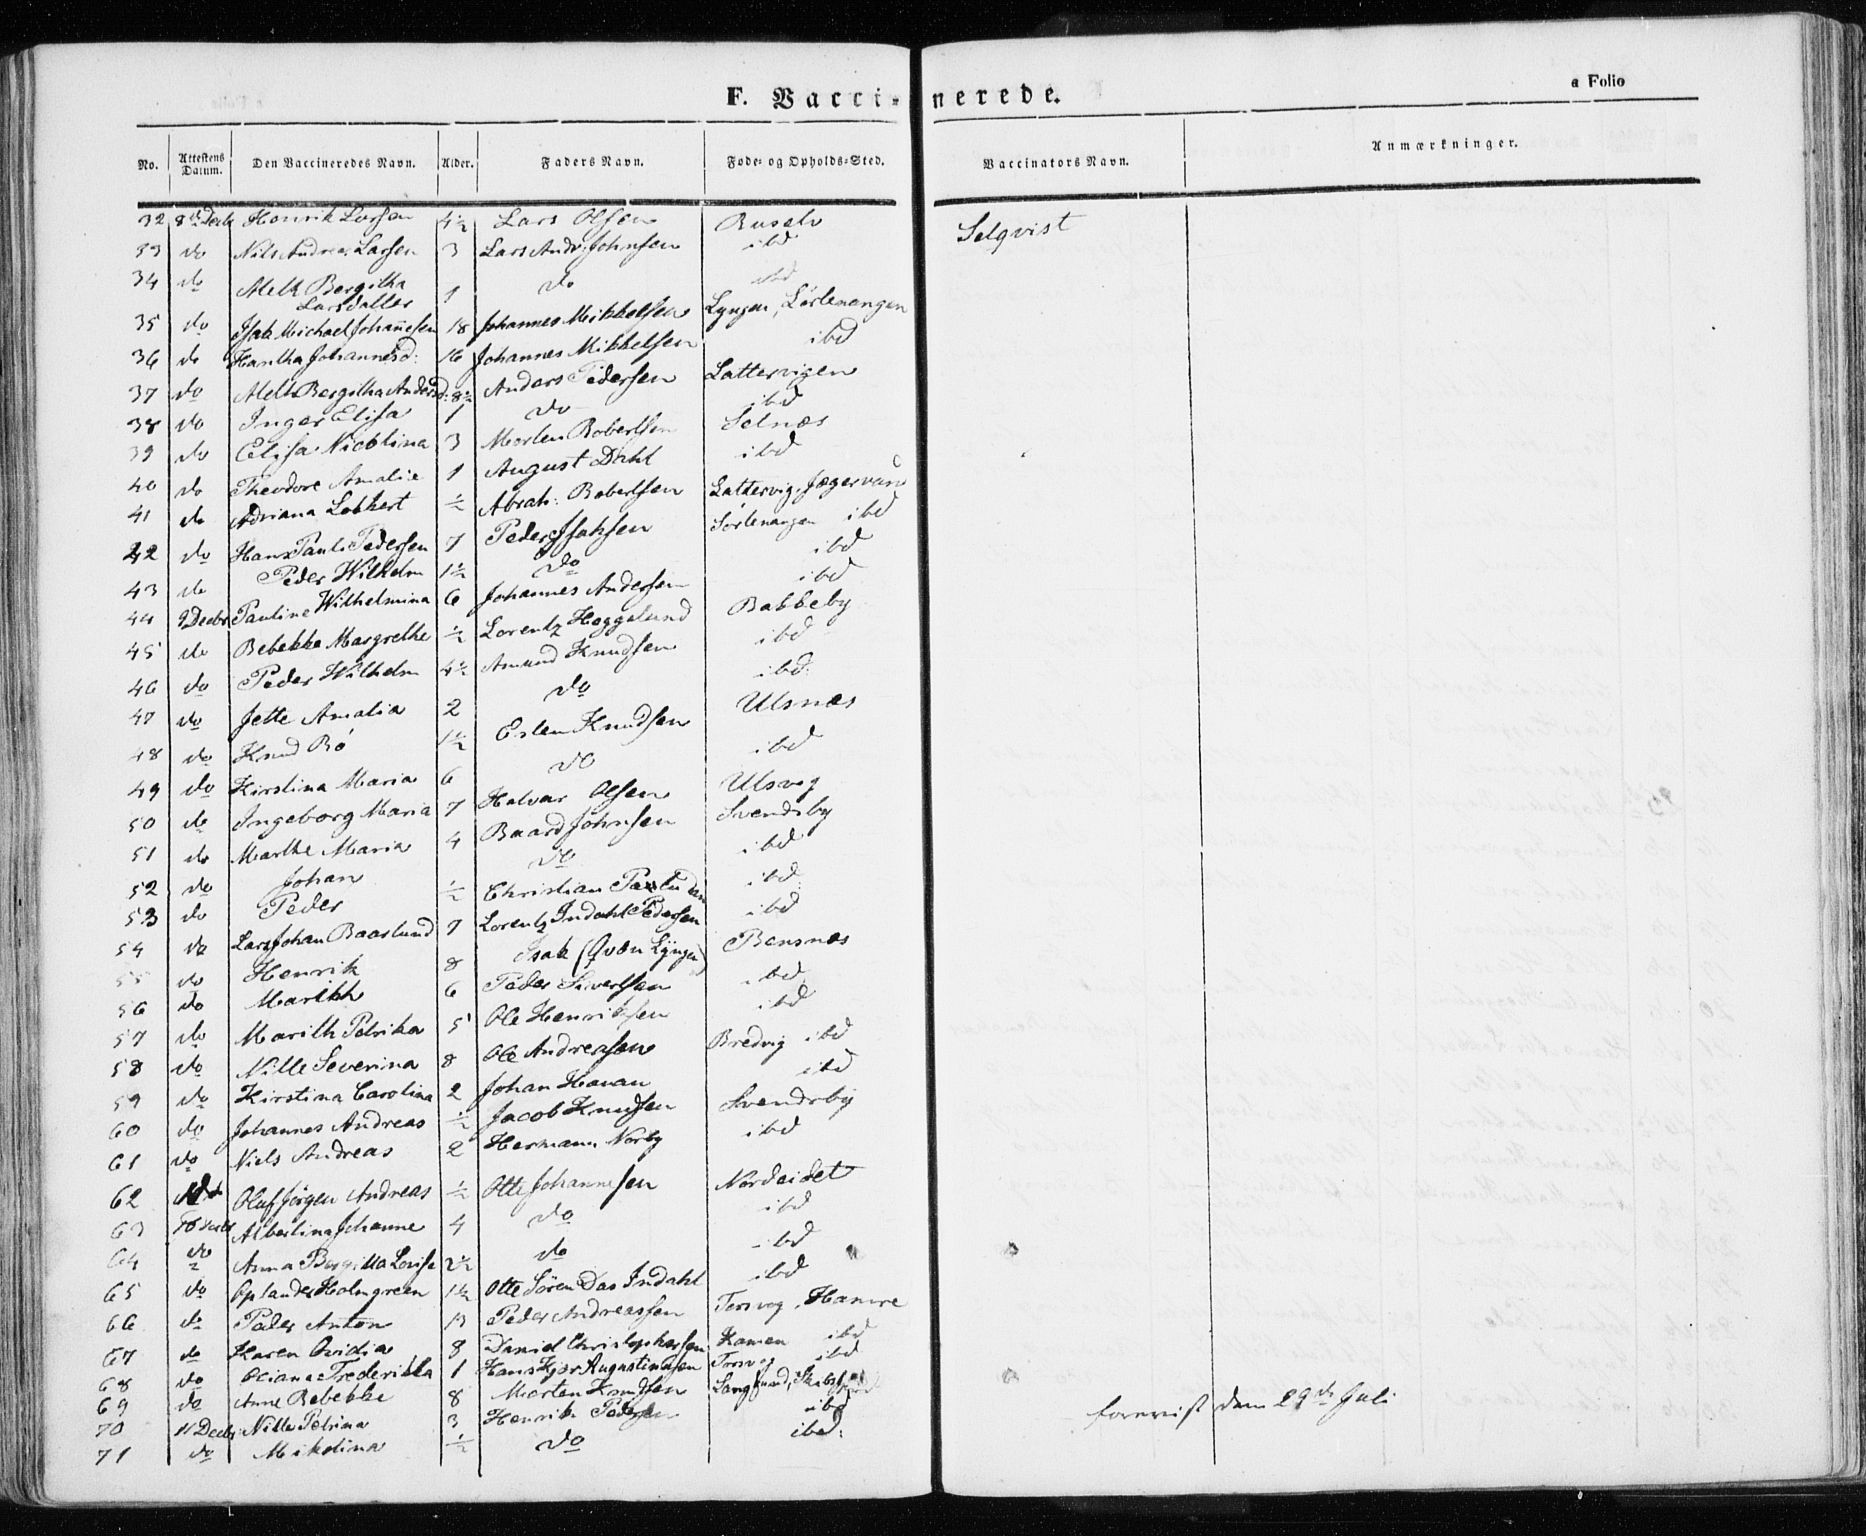 F. Vaccinerede.
a Folio
No. Attestens Datum. Den Vaccineredes Navn. Alder. Faders Navn. Føde- og Opholds-Sted. Vaccinators Navn. Anmærkninger.
32 8de Decbr Henrik Larsen 4½ Lars Olsen Selqvist
33 do Nils Andreas Larsen 3 Lars Andr. Johnsen ibd
34 do Bergitha Larsdatter 1 do ibd
35 do Isak Michael Johannesen 18 Johannes Mikkelsen Lyngen, Sørlenangen
36 do Johannesd: 16 Johannes Mikkelsen ibd
37 do Bergitha Andersd: 8½ Anders Pedersen Lattervigen
38 do Inger Elisa 1 do ibd
39 do Elisa Nicolina 3 Morten Robertsen Selnæs
40 do Theodore Amalie 1 August Dahl ibd
41 do Adriana Lokkert ½ Abrah: Robertsen Lattervig, Jægervand
42 do Hans Paul Pedersen 7 Peder Isaksen Sørlenangen ibd
43 do Peder Wilhelm 1½ do ibd
44 9 Decbr Pauline Wilhelmina 6 Johannes Andersen ibd
45 do Rebekka Margrethe ½ Lorentz Heggelund Bakkeby
46 do Peder Wilhelm 4½ Amund Knudsen ibd
47 do Jette Amalia 2 do ibd:
48 do Knud Bø 1½ Knudsen Ulsnæs
49 do Kirstina Maria 6 do ibd
50 do Ingeborg Maria 7 Halvar Olsen Ulsveg
51 do Marthe Maria 4 Baard Johnsen Svendsby
52 do Johan do ibd
53 do Peder ½ Christian ibd
54 do Lars Johan Baarlund 7 Lorentz Indahl Pedersen ibd
55 do Henrik 8 Isak (Qvæn Lyngen) Bensnæs
56 do Marith 6 Peder Sivertsen ibd
57 do Marith Petrika 5 Ole Henriksen ibd
58 do Nille Severina 8 Ole Andreasen Bredvig ibd
59 do Kirstina Carolina 2 Johan ibd
60 do Johannes Andreas ½ Jacob Knudsen Svendsby
61 do Niels Andreas 2 Hermann Norby ibd
62 Oluf Jørgen Andreas ½ Otte Johannesen Nordeidet
63 10 Decbr Albertina Johanne 4 do ibd
64 do Anna Bergitta Lovise 2½ do ibd
65 do Holmgreen 1½ Otte Søren Das Indahl ibd
66 do Peder Anton 13 Peder Andreassen Hamre
67 do Karen Ovidia 8 Daniel Christophersen ibd
68 do Frederikka 1 Hans Kjær Augustinusen ibd
69 do Anne Rebekke 8 Morten Knudsen Langsund,
70 11 Decbr: Nille Petrina 3 Henrik Pedersen ibd
71 do Mikolina ½ do ibd:
forevist den 29de Juli